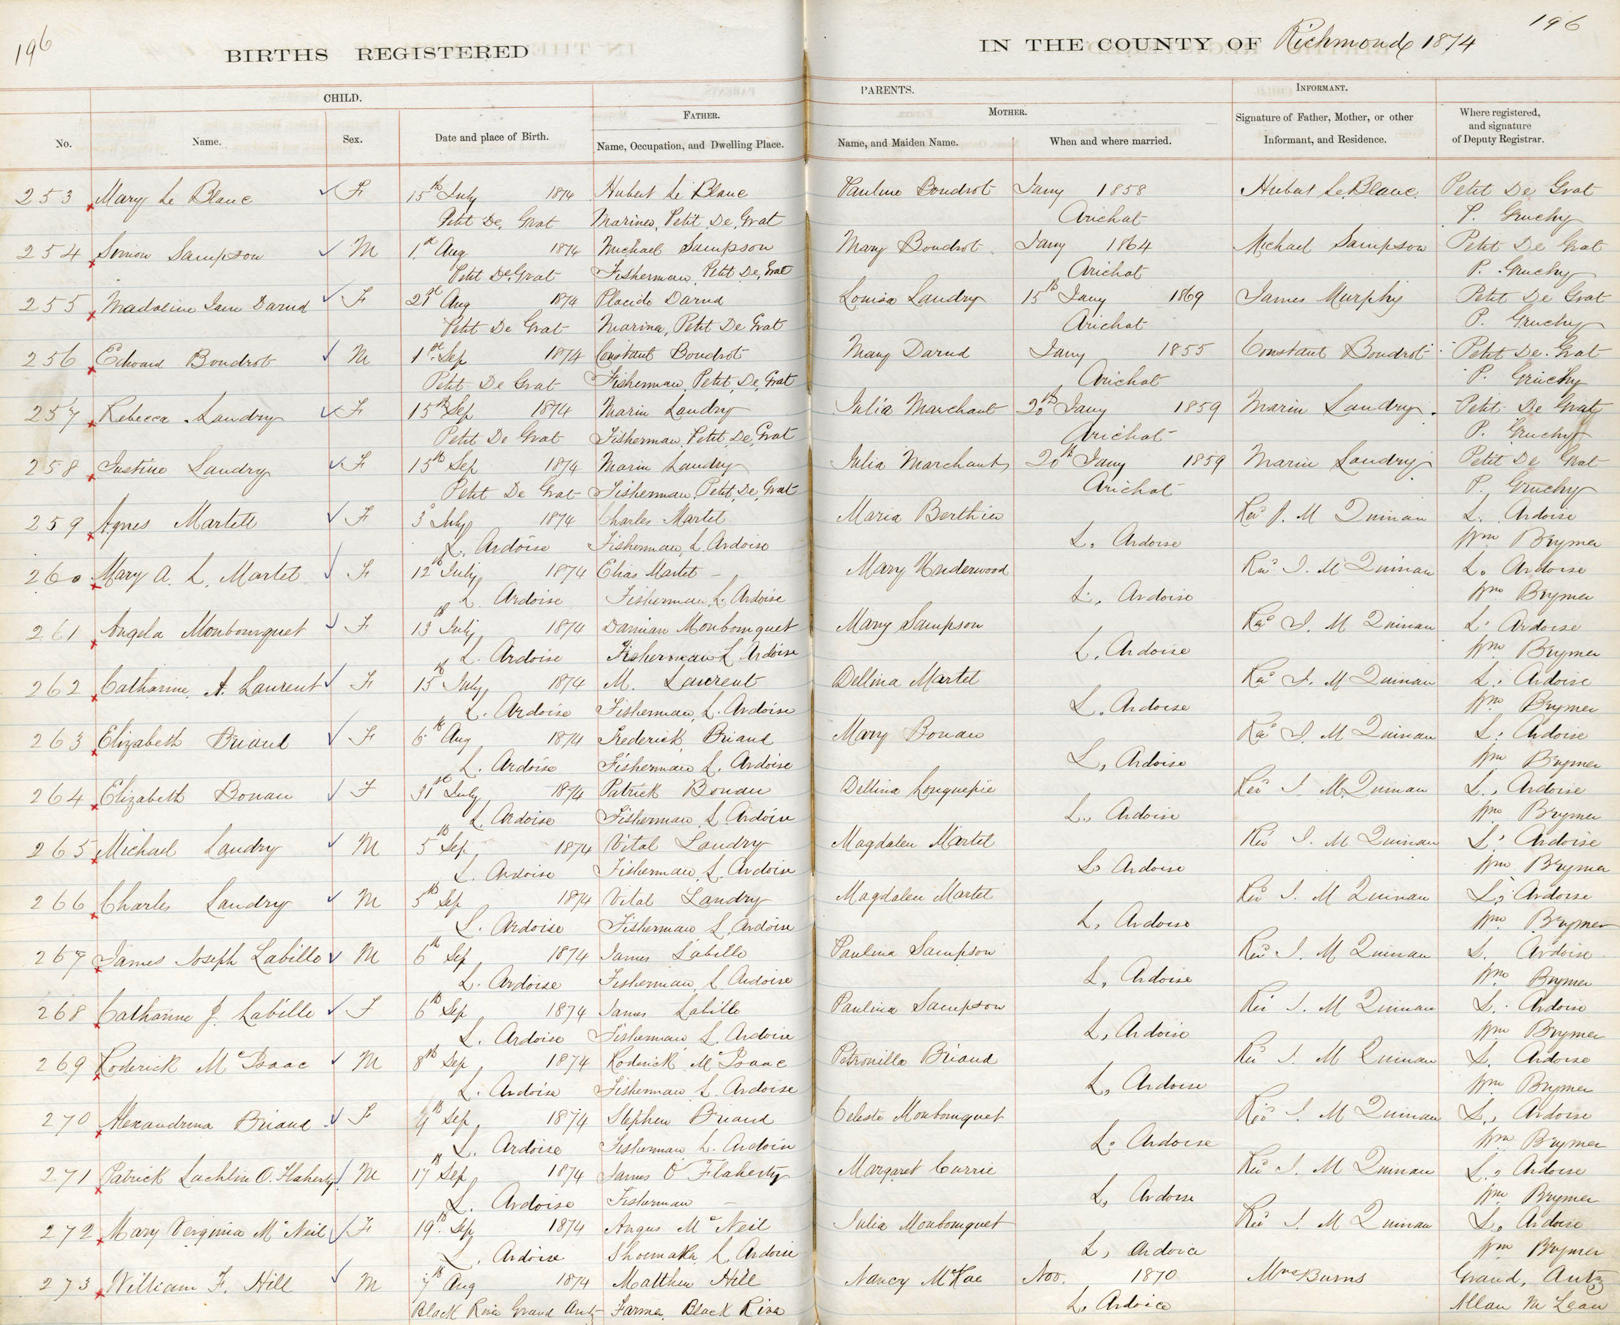 196
196
BIRTHS REGISTERED
IN THE COUNTY OF Richmond 1874
CHILD.
PARENTS.
INFORMANT.
No.
Name.
Sex.
Date and place of Birth.
FATHER.
Name, Occupation, and Dwelling Place.
MOTHER.
Name, and Maiden Name.
When and where married.
Signature of Father, Mother, or other
Informant, and Residence.
Where registered,
and signature
of Deputy Registrar.
253 Mary Le Blanc F 15th July 1874 Hubert Le Blanc Pauline Boudrot Jany 1858 Hubert Le Blanc Petit De Grat
Petit De Grat Mariner, Petit De Grat Arichat P. Gruchy
254 Simon Sampson M 1st Aug 1874 Michael Sampson Mary Boudrot Jany 1864 Michael Sampson Petit De Grat
Petit De Grat Fisherman, Petit De Grat Arichat P. Gruchy
255 Madaline Jane F 21st Aug 1874 Placide Louisa Landry 15th Jany 1869 James Murphy Petit De Grat
Petit De Grat Marina, Petit De Grat Arichat P. Gruchy
256 Edward Boudrot M 1st Sep 1874 Constant Boudrot Mary Jany 1855 Constant Boudrot Petit De Grat
Petit De Grat Fisherman, Petit De Grat Arichat P. Gruchy
257 Rebecca Landry F 15th Sep 1874 Marin Landry Julia Marchant 20th Jany 1859 Marin Landry Petit De Grat
Petit De Grat Fisherman, Petit De Grat Arichat P. Gruchy
258 Justine Landry F 15th Sep 1874 Marin Landry Julia Marchant 20th Jany 1859 Marin Landry Petit De Grat
Petit De Grat Fisherman, Petit De Grat Arichat P. Gruchy
259 Agnes Martett F 3 July 1874 Charles Martet Maria Berthier Revd J. M Quinan L. Ardoise
L. Ardoise Fisherman, L Ardoise L. Ardoise Wm Brymer
260 Mary A. L. Martet F 12th July 1874 Elias Martet Mary Underwood Revd J. M Quinan L. Ardoise
L. Ardoise Fisherman, L. Ardoise L. Ardoise Wm Brymer
261 Angela Monbourquet F 13th July 1874 Damian Monbourquet Mary Sampson Revd J. M Quinan L. Ardoise
L. Ardoise Fisherman L Ardoise L. Ardoise Wm Brymer
262 Catharine A. Laurent F 15th July 1874 M. Laurent Dellina Martet Revd J. M Quinan L. Ardoise
L. Ardoise Fisherman, L. Ardoise L. Ardoise Wm Brymer
263 Elizabeth Briand F 6th Aug 1874 Frederick Briand Mary Bonan Revd J. M Quinan L. Ardoise
L. Ardoise Fisherman L. Ardoise L, Ardoise Wm Brymer
264 Elizabeth Bonan F 31st July 1874 Patrick Bonan Dellina Longuepie Revd J. M. Quinan L., Ardoise
L. Ardoise Fisherman L Ardoise L., Ardoise Wm Brymer
265 Michael Landry M 5th Sep 1874 Vital Landry Magdalen Martet Rev J. M Quinan L. Ardoise
L. Ardoise Fisherman, L. Ardoise L. Ardoise Wm Brymer
266 Charles Landry M 5th Sep 1874 Vital Landry Magdalen Martet Rev J. M Quinan L, Ardoise
L. Ardoise Fisherman L. Ardoise L, Ardoise Wm Brymer
267 James Joseph Labille M 6th Sep 1874 James Labille Paulina Sampson Rev J. M Quinan L. Ardoise
L. Ardoise Fisherman, L Ardoise L, Ardoise Wm Brymer
268 Catharine J. Labille F 6th Sep 1874 James Labille Paulina Sampson Rev J. M Quinan L. Ardoise
L. Ardoise Fisherman L. Ardoise L, Ardoise Wm Brymer
269 Roderick McIsaac M 8th Sep 1874 Roderick McIsaac Petronilla Briand Rev J. M Quinan L, Ardoise
L. Ardoise Fisherman L. Ardoise L, Ardoise Wm Brymer
270 Alexandrina Briand F 9th Sep 1874 Stephen Briand Celeste Monbourquet Rev J. M Quinan L, Ardoise
L. Ardoise Fisherman L. Ardoise L. Ardoise Wm Brymer
271 Patrick Lachlin O. Flaherty M 17th Sep 1874 James O Flaherty Margaret Currie Rev J. M Quinan L, Ardoise
L. Ardoise Fisherman L, Ardoise Wm Brymer
272 Mary Verginia McNeil F 19th Sep 1874 Angus McNeil Julia Monbourquet Rev J. M Quinan L, Ardoise
L, Ardoise Shoemaker L. Ardoise L, Ardoice Wm Brymer
273 William F. Hill M 7th Aug 1874 Matthew Hill Nancy McKae Nov. 1870 Mrs Burns Grand, Antz
Black River Grand Antz Farmer Black River L. Ardoice Allan McLean